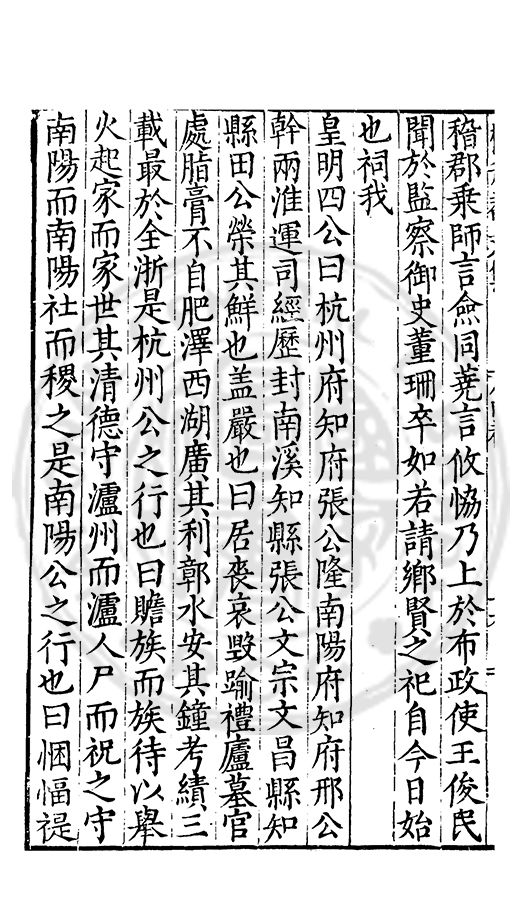 稽郡乘師言僉同蕘言攸恊乃上於布政使王俊民
聞於監察御史董珊卒如若請鄉賢之祀自今日始
也祠我
皇明四公曰杭州府知府張公隆南陽府知府邢公
幹兩淮運司經歷封南溪知縣張公文宗文昌縣知
縣田公榮其鮮也盖嚴也曰居喪哀毀踰禮廬墓官
處脂膏不自肥澤西湖廣其利鄣水安其鐘考績三
載最於全浙是杭州公之行也曰贍族而族待以舉
火起家而家世其清德守瀘州而瀘人尸而祝之守
南陽而南陽社而稷之是南陽公之行也曰悃愊禔